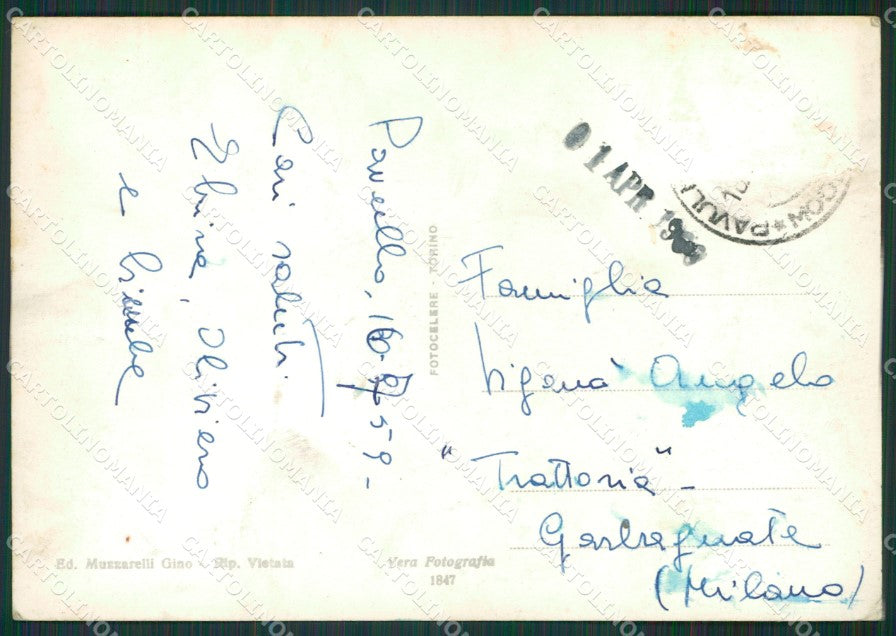 Pavullo, 16-7-59-
Cari saluti.
Elvira, Oliviero
e
01 APR 19
COM * PAVULL
Famiglia
Vigenà Angelo
"Trattoria" -
Garbagnate
(Milano)
FOTOCELERE - TORINO
Ed. Muzzarelli Gino - Rip. Vietata
Vera Fotografia
1847
CARTOLINOMANIA